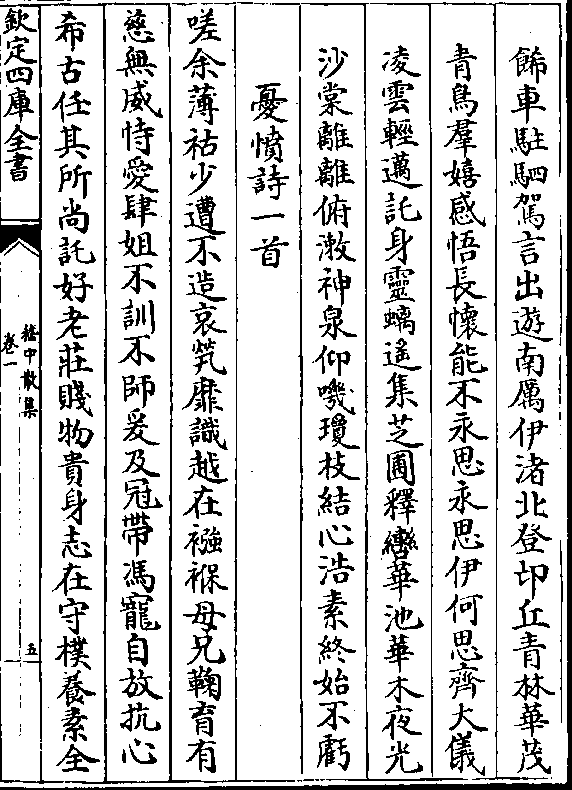 餙車駐駟駕言出遊南厲伊渚北登邙丘青林華茂
青鳥羣嬉感悟長懷能不永思永思伊何思齊大儀
凌雲輕邁託身靈螭遙集芝圃釋轡華池華木夜光
沙棠離離俯漱神泉仰嘰瓊枝結心浩素終始不虧
憂憤詩一首
嗟余薄祜少遭不造哀煢靡識越在襁褓母兄鞠育有
慈無威恃愛肆姐不訓不師爰及冠帶馮寵自放抗心
希古任其所尚託好老莊賤物貴身志在守樸養素全
欽定四庫全書
嵇中散集
卷一
五